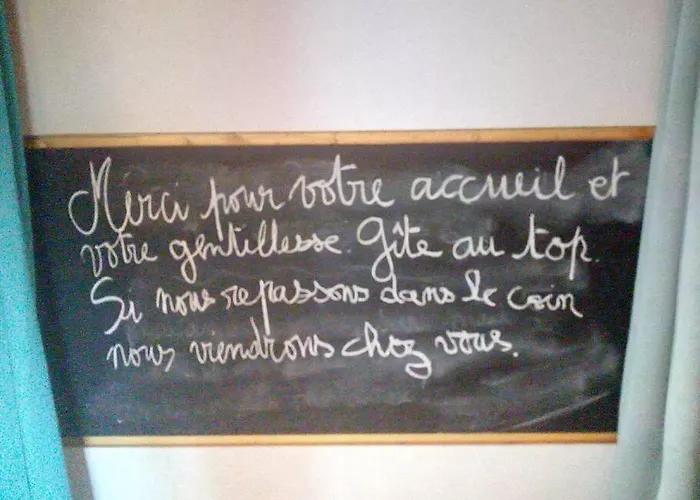 Merci pour votre accueil et
votre gentillesse. Gîte au top.
Si nous repassons dans le coin
nous viendrons chez vous.